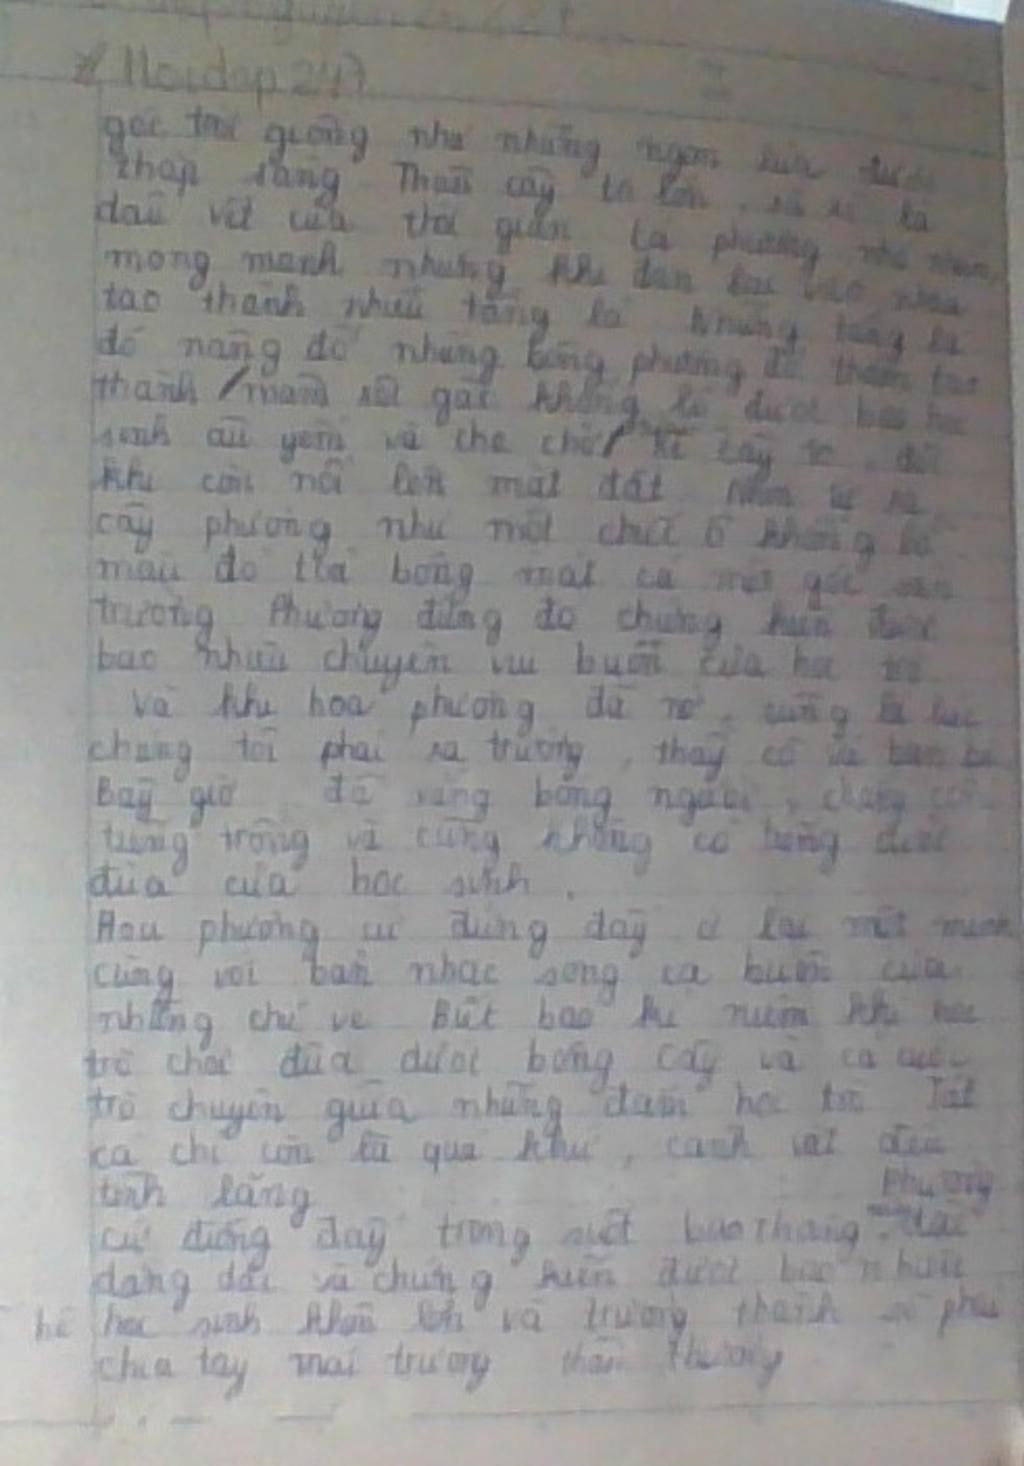 Hoidap 247
góc trời giống như những ngọn lửa được
thắp sáng Thân cây to lớn, sù sì là
dấu vết của thời gian Lá phượng nhỏ
mỏng manh nhưng khi đan lại vào nhau
tạo thành nhiều tầng lá những tầng lá
đó nâng đỡ những bông phượng đỏ thắm tạo
thành / mảnh góc khổng lồ được bao học
sinh âu yếm và che chở / Rễ cây to, đôi
khi còn nổi lên mặt đất Nhìn từ xa
cây phượng như một chiếc ô khổng lồ
màu đỏ tỏa bóng mát cả một góc sân
trường Phượng đứng đó chứng kiến được
bao nhiêu chuyện vui buồn của học trò
Và khi hoa phượng đã nở, cũng là lúc
chúng tôi phải ra trường, thầy cô và bạn bè
Bây giờ đã vắng bóng người, chẳng còn
tiếng trống và cũng không có tiếng cười
đùa của học sinh.
Hoa phượng cứ đứng đấy ở lại một mình
cùng với bản nhạc song ca buồn của
những chú ve Biết bao kỉ niệm khi học
trò chơi đùa dưới bóng cây và cả cuộc
trò chuyện giữa những đám học trò Tất
cả chỉ còn là quá khứ, cảnh vật đều
tĩnh lặng Phượng
cứ đứng đấy trong suốt bao tháng
dài và chứng kiến được bao nhiêu
hệ học sinh khôn lớn và trưởng thành sẽ phải
chia tay mái trường thân thương